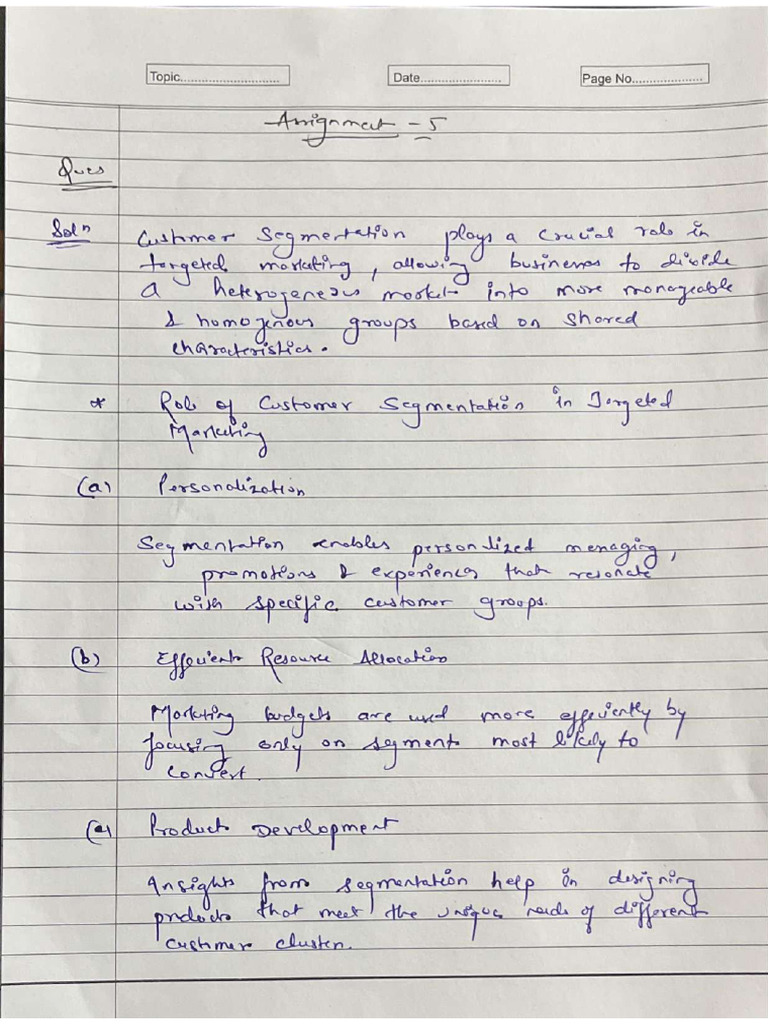 Topic............................ Date....................... Page No....................
Assignment - 5
Ques
Soln Customer Segmentation plays a crucial role in
targeted marketing, allowing businesses to divide
a heterogeneous market into more manageable
& homogenous groups based on shared
characteristics.
* Role of Customer Segmentation in Targeted
Marketing
(a) Personalization
Segmentation enables personalized menaging,
promotions & experiences that resonate
with specific customer groups.
(b) Efficient Resource Allocation
Marketing budgets are used more efficiently by
focusing only on segments most likely to
convert.
(c) Product Development
Insights from segmentation help in designing
products that meet the unique needs of different
customer cluster.